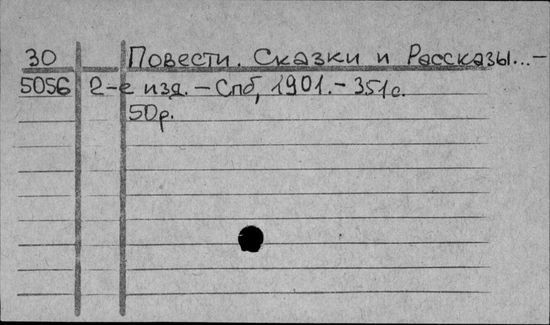 30 Повести. Сказки и Рассказы...–
5056 2-е изд. – Спб, 1901. – 351с.
50р.